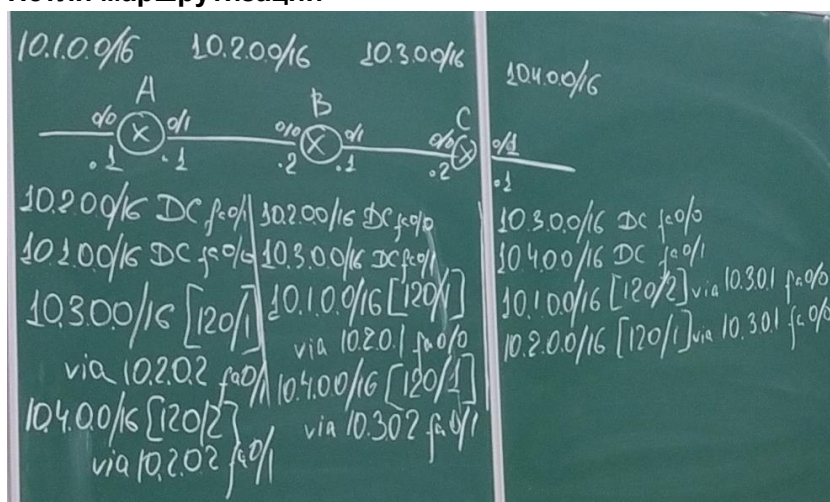 10.1.0.0/16 10.2.0.0/16 10.3.0.0/16 10.4.0.0/16
A B C
0/0 0/1 0/0 0/1 0/0 0/1
.1 .1 .2 .1 .2 .1
10.2.0.0/16 DC fa0/1
10.1.0.0/16 DC fa0/0
10.3.0.0/16 [120/1]
via 10.2.0.2 fa0/1
10.4.0.0/16 [120/2]
via 10.2.0.2 fa0/1
10.2.0.0/16 DC fa0/0
10.3.0.0/16 DC fa0/1
10.1.0.0/16 [120/1]
via 10.2.0.1 fa0/0
10.4.0.0/16 [120/1]
via 10.3.0.2 fa0/1
10.3.0.0/16 DC fa0/0
10.4.0.0/16 DC fa0/1
10.1.0.0/16 [120/2] via 10.3.0.1 fa0/0
10.2.0.0/16 [120/1] via 10.3.0.1 fa0/0